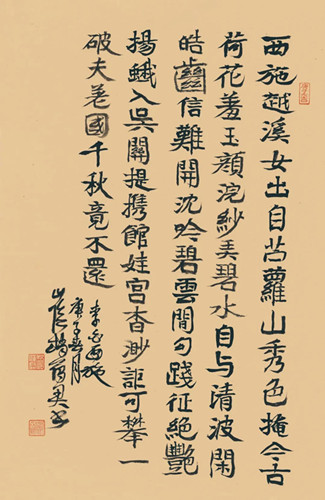 西施越溪女出自苎蘿山秀色掩今古
荷花羞玉顔浣紗弄碧水自与清波閑
皓齒信難開沈吟碧雲間句踐征絶艷
揚蛾入吳關提携館娃宫杳渺詎可攀一
破夫差國千秋竟不還
李白西施
庚子月
书